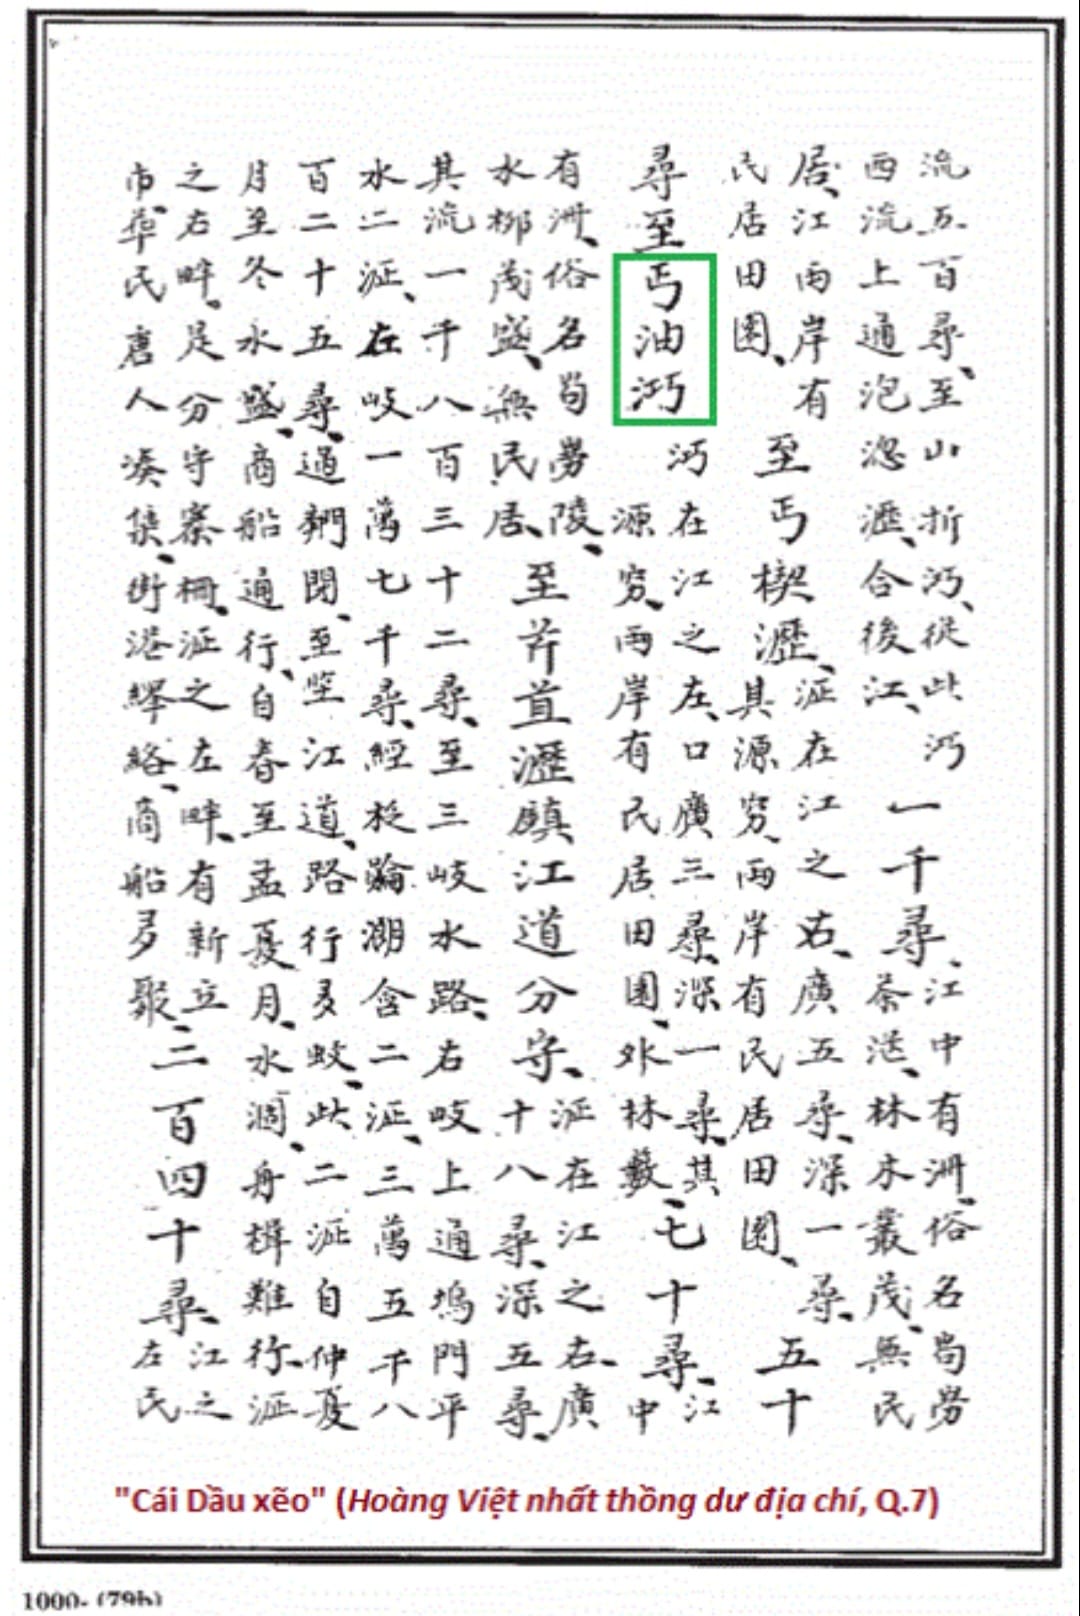 流五百尋、至山折沔、從此沔
西流上通泡瀝、合後江、
一千尋、
江中有洲、俗名茍勞
茶渃、林木叢茂、無民
居、江兩岸有
民居田園、
至丐楔瀝、
涯在江之右、廣五尋、深一尋、
其源窮、兩岸有民居田園、
五十
尋至丐油沔
沔在江之左、口廣三尋、深一尋、其
源窮、兩岸有民居田園、外林藪、
七十尋、
江
中
有洲、俗名茍勞陵、
水柳茂盛、無民居、
至芹苴瀝鎮江道分守、
涯在江之右、廣
十八尋、深五尋、
其流一千八百三十二尋、至三岐水路、右岐上通塢門平
水二涯、在岐一萬七千尋、經潮含二涯、三萬五千八
百二十五尋、通閉、至坐江道、路行多蚊、此二涯自仲夏
月至冬水盛、商船通行、自春至孟夏月、水涸、舟楫難行、涯
之右畔、是分守寨柵、涯之左畔、有新立
市、華民唐人湊集、街港繹絡、商船多聚、
二百四十尋、
江之
左民
"Cái Dầu xẽo" (Hoàng Việt nhất thồng dư địa chí, Q.7)
1000- (79b)